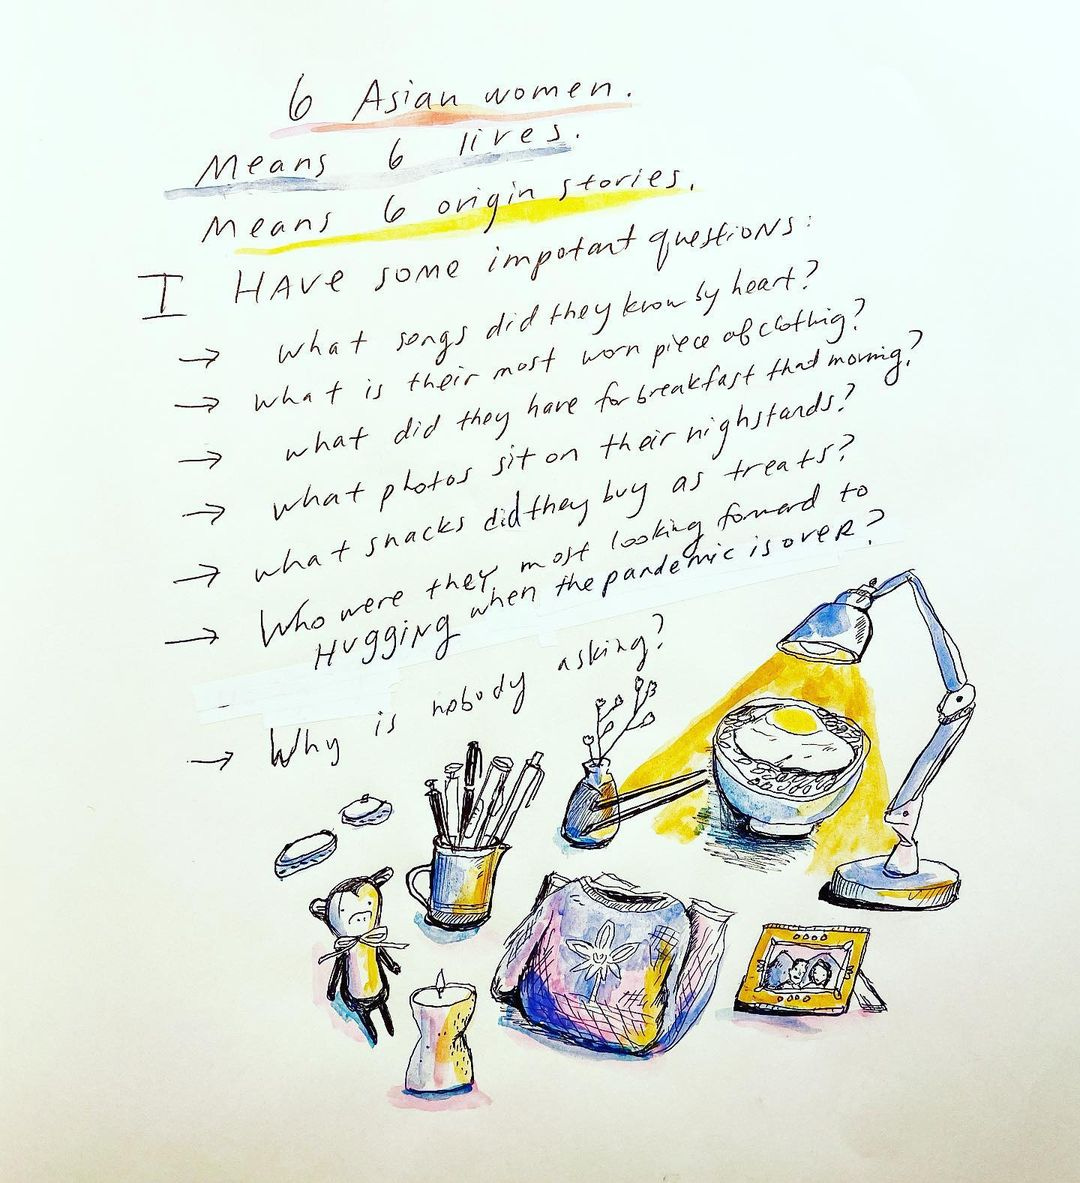 6 Asian women.
Means 6 lives.
Means 6 origin stories.
I HAve some impotant questions:
→ what songs did they know by heart?
→ what is their most worn piece of clothig?
→ what did they have for breakfast that morning?
→ what photos sit on their nighstands?
→ what snacks did they buy as treats?
→ Who were they most looking forward to
HuggiNg when the pandemic is oveR?
→ Why is nobody asking?